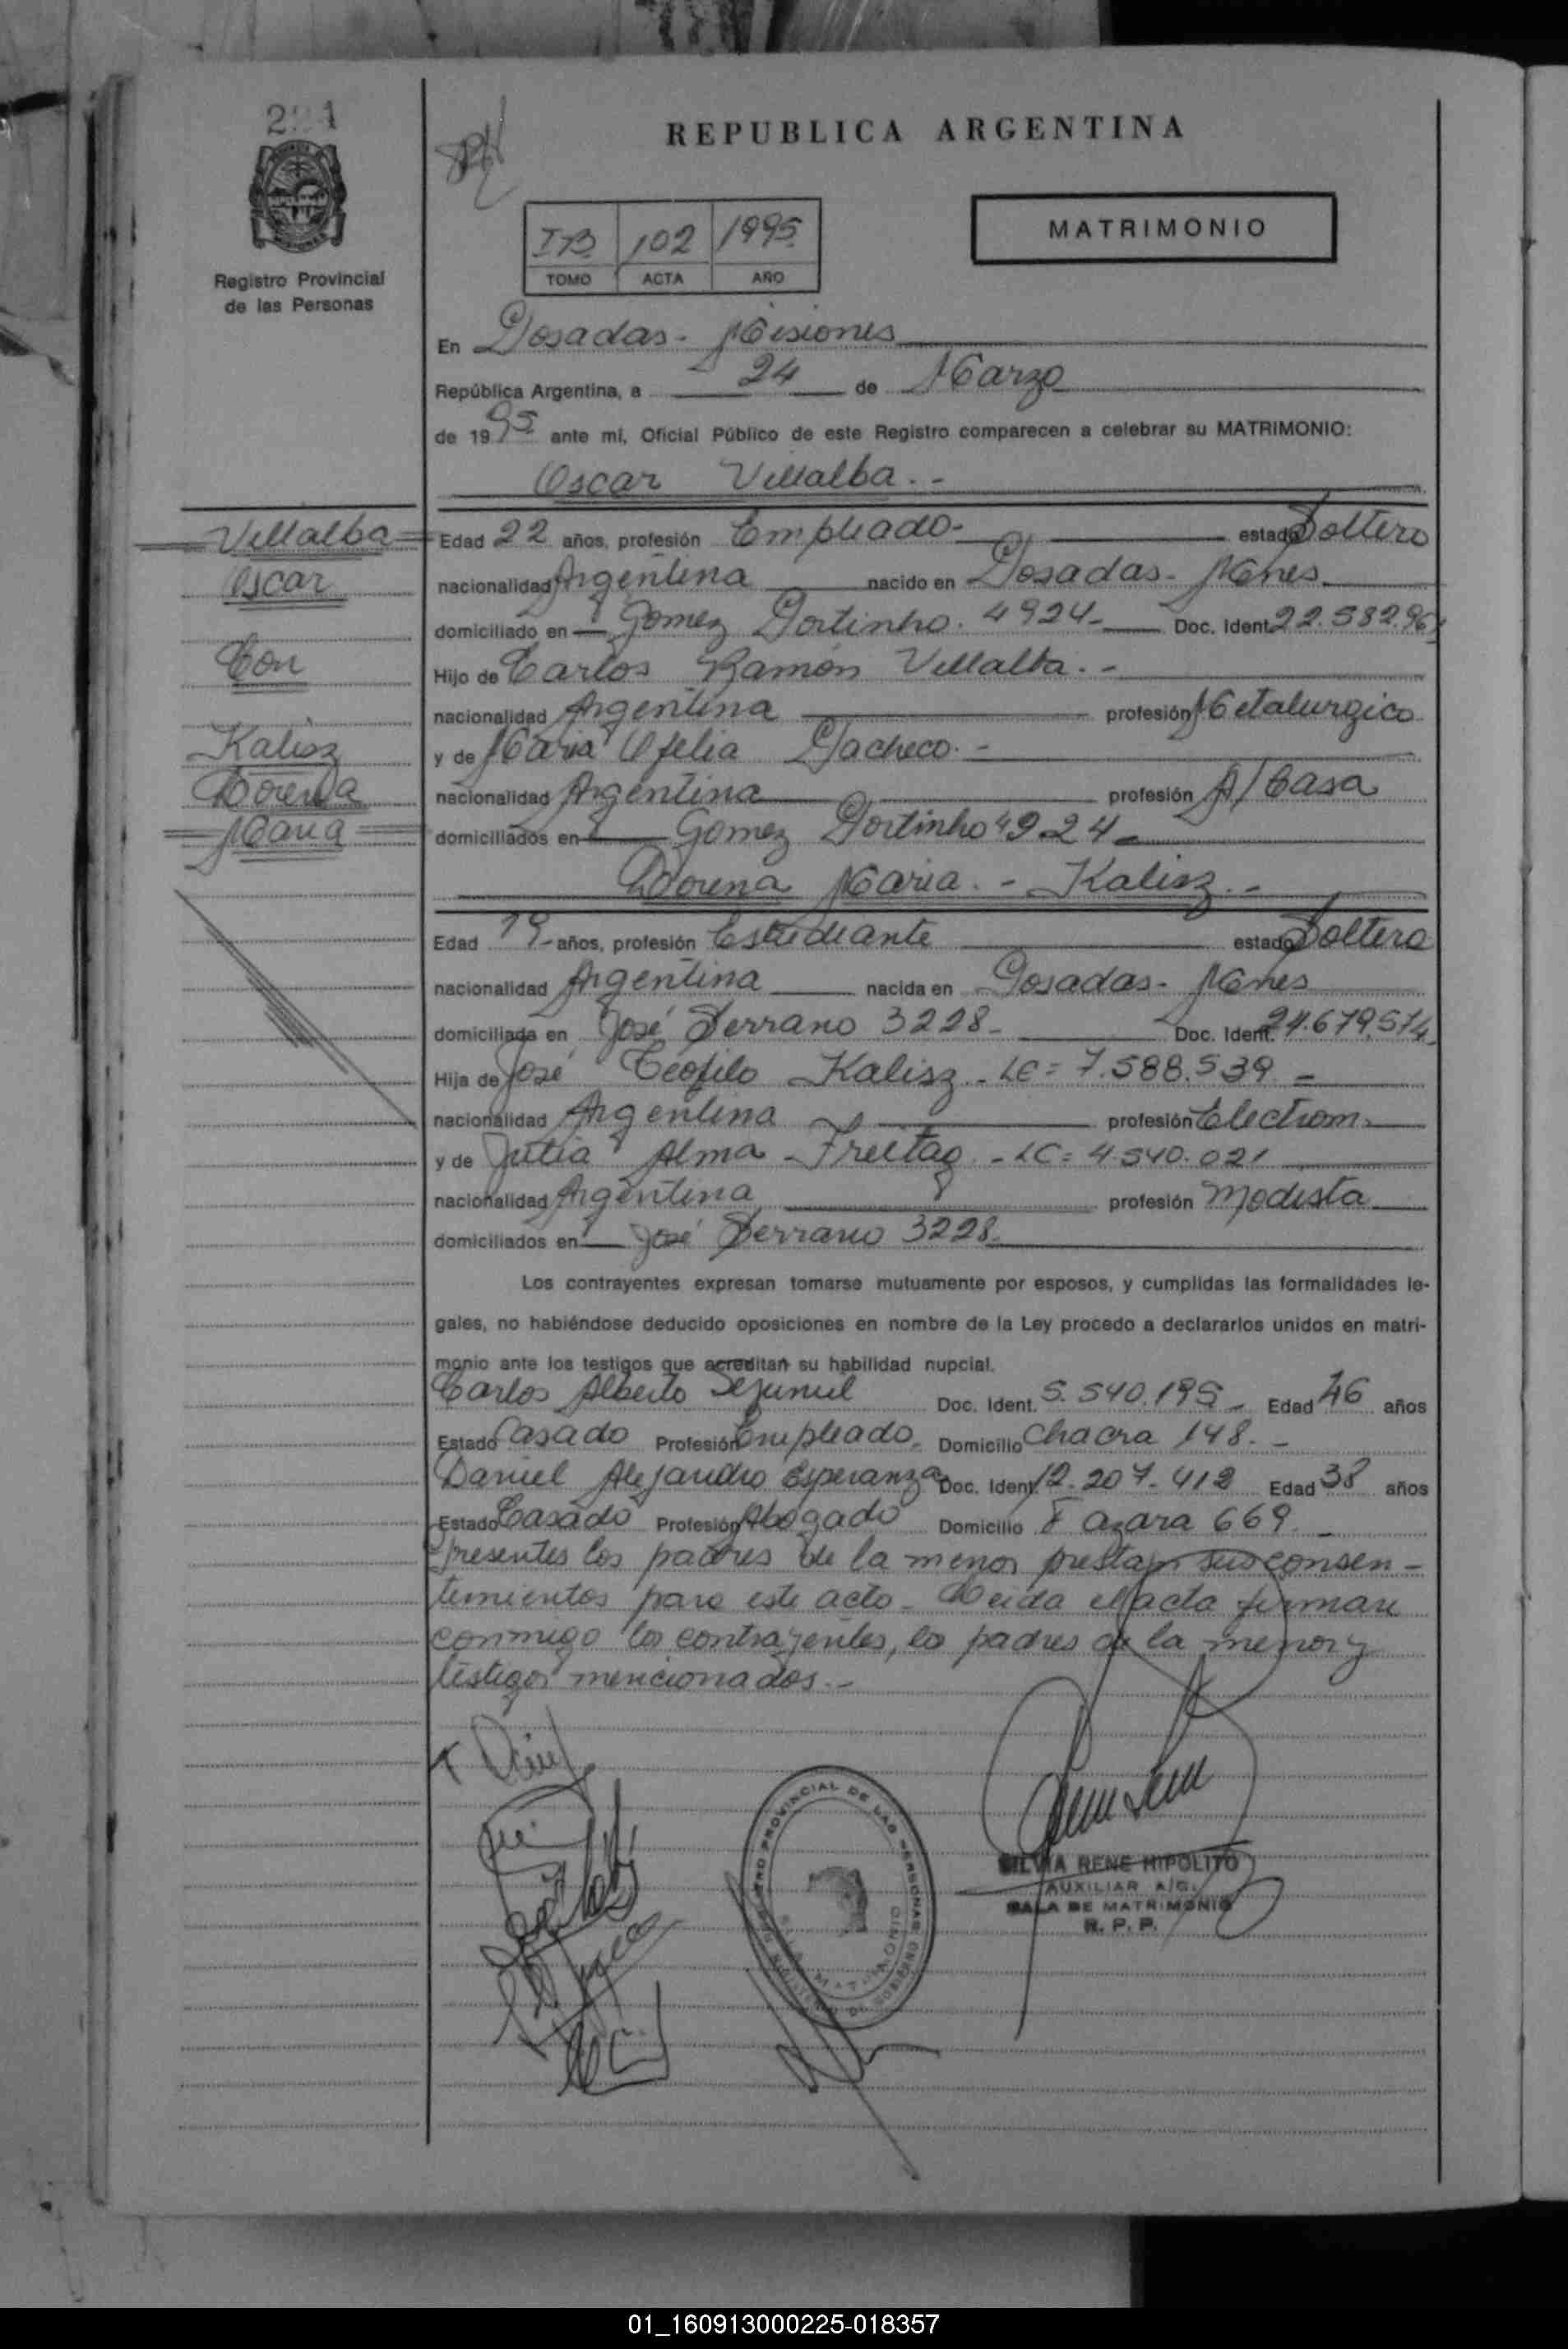 REPUBLICA ARGENTINA
Registro Provincial
de las Personas
I B 102 1995
TOMO ACTA AÑO
MATRIMONIO
En Posadas - Misiones
República Argentina, a 24 de Marzo
de 1995 ante mí, Oficial Público de este Registro comparecen a celebrar su MATRIMONIO:
Oscar Villalba.-
Villalba
Oscar
Con
Kalisz
Lorena
Maria
Edad 22 años, profesión Empleado- estado Soltero
nacionalidad Argentina nacido en Posadas - Mnes
domiciliado en Gomez Portinho. 4924- Doc. Ident. 22.582.96
Hijo de Carlos Ramón Villalba.-
nacionalidad Argentina profesión Metalurgico
y de Maria Ofelia Pacheco.-
nacionalidad Argentina profesión A/Casa
domiciliados en Gomez Portinho 4924-
Lorena Maria.- Kalisz.-
Edad 19- años, profesión Estudiante estado Soltera
nacionalidad Argentina nacida en Posadas - Mnes
domiciliada en José Serrano 3228- Doc. Ident. 24.679.574
Hija de José Teofilo Kalisz - LE= 7.588.539 -
nacionalidad Argentina profesión Electrom.
y de Julia Alma Freitag - LC= 4.540.021
nacionalidad Argentina profesión Modista
domiciliados en José Serrano 3228-
Los contrayentes expresan tomarse mutuamente por esposos, y cumplidas las formalidades le-
gales, no habiéndose deducido oposiciones en nombre de la Ley procedo a declararlos unidos en matri-
monio ante los testigos que acreditan su habilidad nupcial.
Carlos Alberto Doc. Ident. 5.540.195- Edad 46 años
Estado Casado Profesión Empleado Domicilio Chacra 148.-
Daniel Alejandro Esperanza Doc. Ident. 12.207.412 Edad 38 años
Estado Casado Profesión Abogado Domicilio F azara 669.-
Presentes los padres de la menor prestan sus consen-
timientos para este acto - Leida el acta firman
conmigo los contrayentes, lo padres de la menor y
testigos mencionados.-
REGISTRO PROVINCIAL DE LAS PERSONAS
MINISTERIO DE GOBIERNO
MATRIMONIO
SILVIA RENE HIPOLITO
AUXILIAR A/C.
SALA DE MATRIMONIO
R. P. P.
01_160913000225-018357